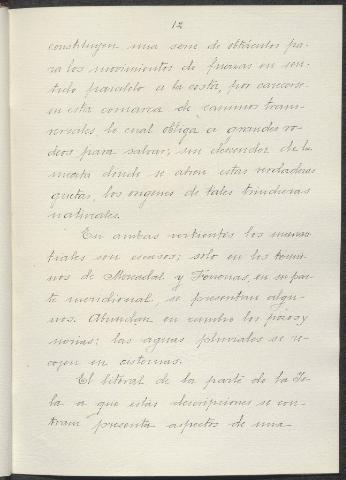 12
constituyen una serie de obstáculos pa-
ra los movimientos de fuerzas en sen-
tido paralelo a la costa, por carecerse
en esta comarca de caminos trans-
versales, lo cual obliga a grandes ro-
deos para salvar, sin descender de la
meseta donde se abren estas verdaderas
grietas, los orígenes de tales trincheras
naturales.
En ambas vertientes los manan-
tiales son escasos; solo en los térmi-
nos de Mercadal y Ferrerías, en su par-
te meridional, se presentan algu-
nos. Abundan en cambio los pozos y
norias; las aguas pluviales se re-
cojen en cisternas.
El litoral de la parte de la Is-
la a que estas descripciones se con-
traen presenta aspectos de una